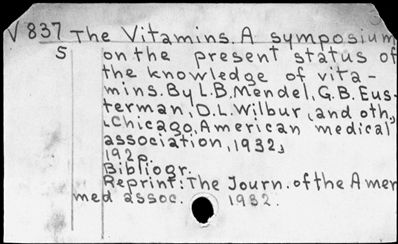 V 837 The Vitamins. A symposium
5 on the present status of
the knowledge of vita-
mins. By L.B. Mendel, G.B. Eus-
terman, D.L. Wilbur, and oth,
Chicago, American medical
association, 1932,
192p.
Bibliogr.
Reprint: The Journ. of the Amer
med assoc. 1932.